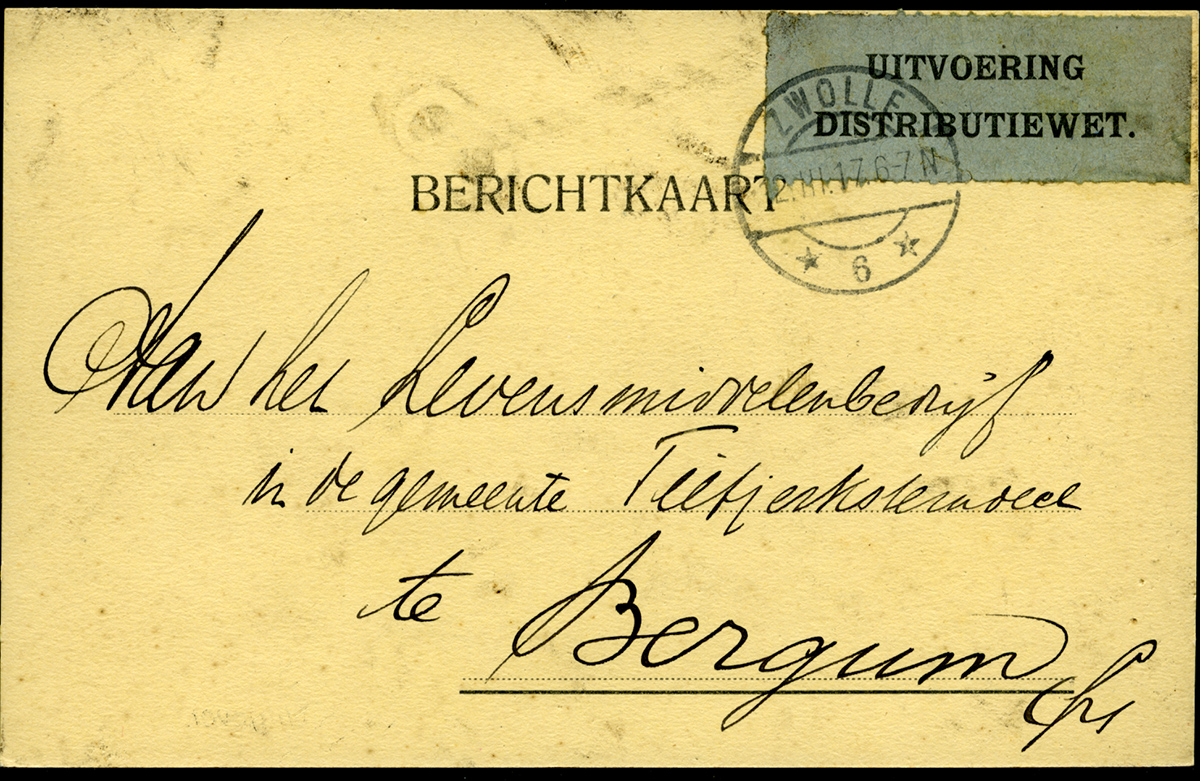 UITVOERING
DISTRIBUTIEWET.
ZWOLLE
12.III.17.6-7N
6
BERICHTKAART
Aan het Levensmiddelenbedrijf
in de gemeente Tietjerksteradeel
te Bergum